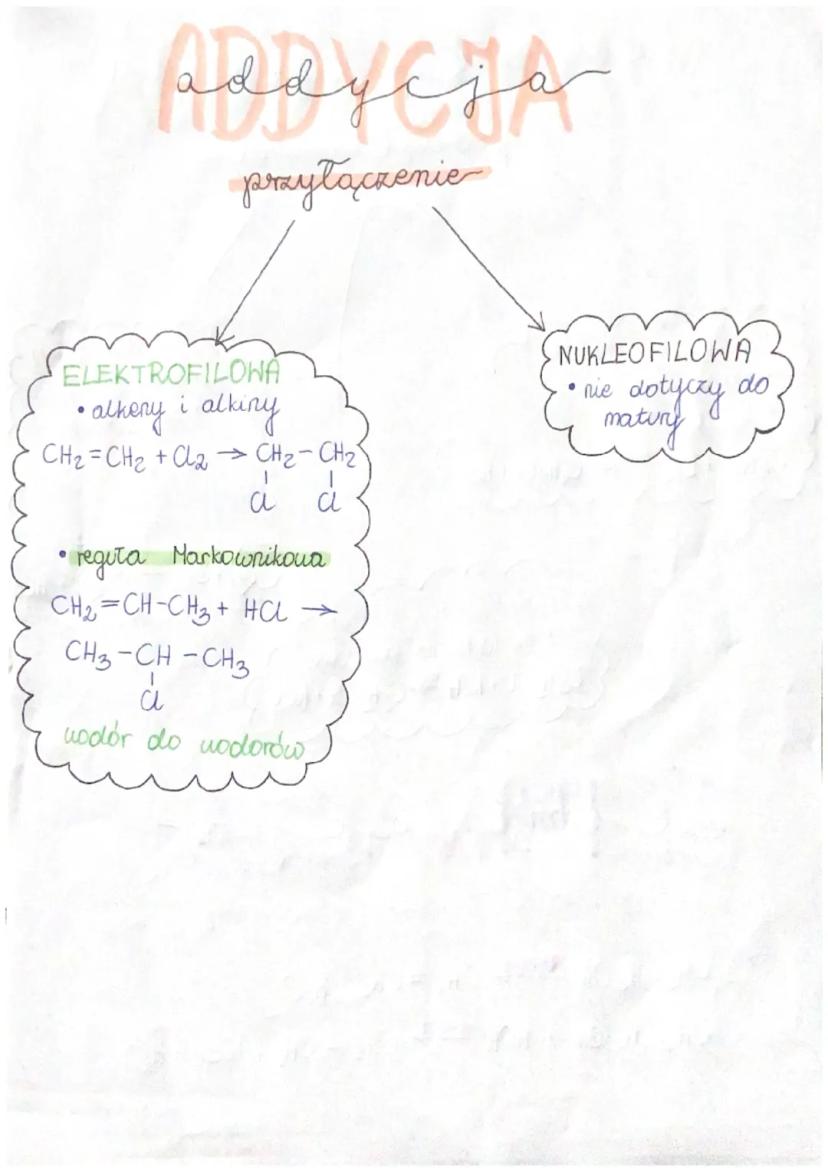 ADDYCJA
addycja
przyłączenie
ELEKTROFILOWA
• alkeny i alkiny
CH₂=CH₂ + Cl₂ → CH₂-CH₂
Cl Cl
• reguła Markownikowa
CH₂=CH-CH₃ + HCl →
CH₃-CH-CH₃
Cl
wodór do wodorów
NUKLEOFILOWA
• nie dotyczy do
matury